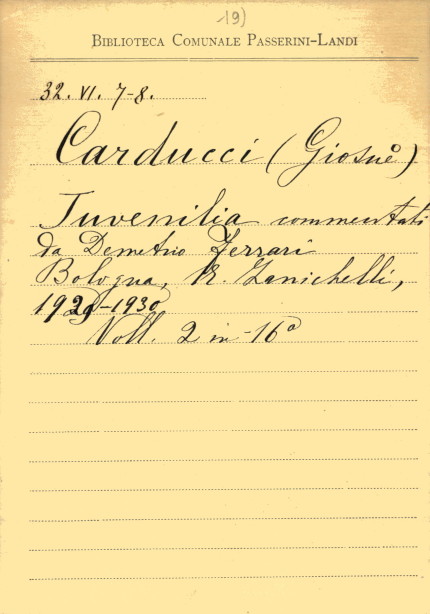 19)
BIBLIOTECA COMUNALE PASSERINI-LANDI
32. VI. 7-8.
Carducci (Giosuè)
Juvenilia commentati
da Demetrio Ferrari
Bologna, N. Zanichelli,
1929-1930
Voll. 2 in-16°